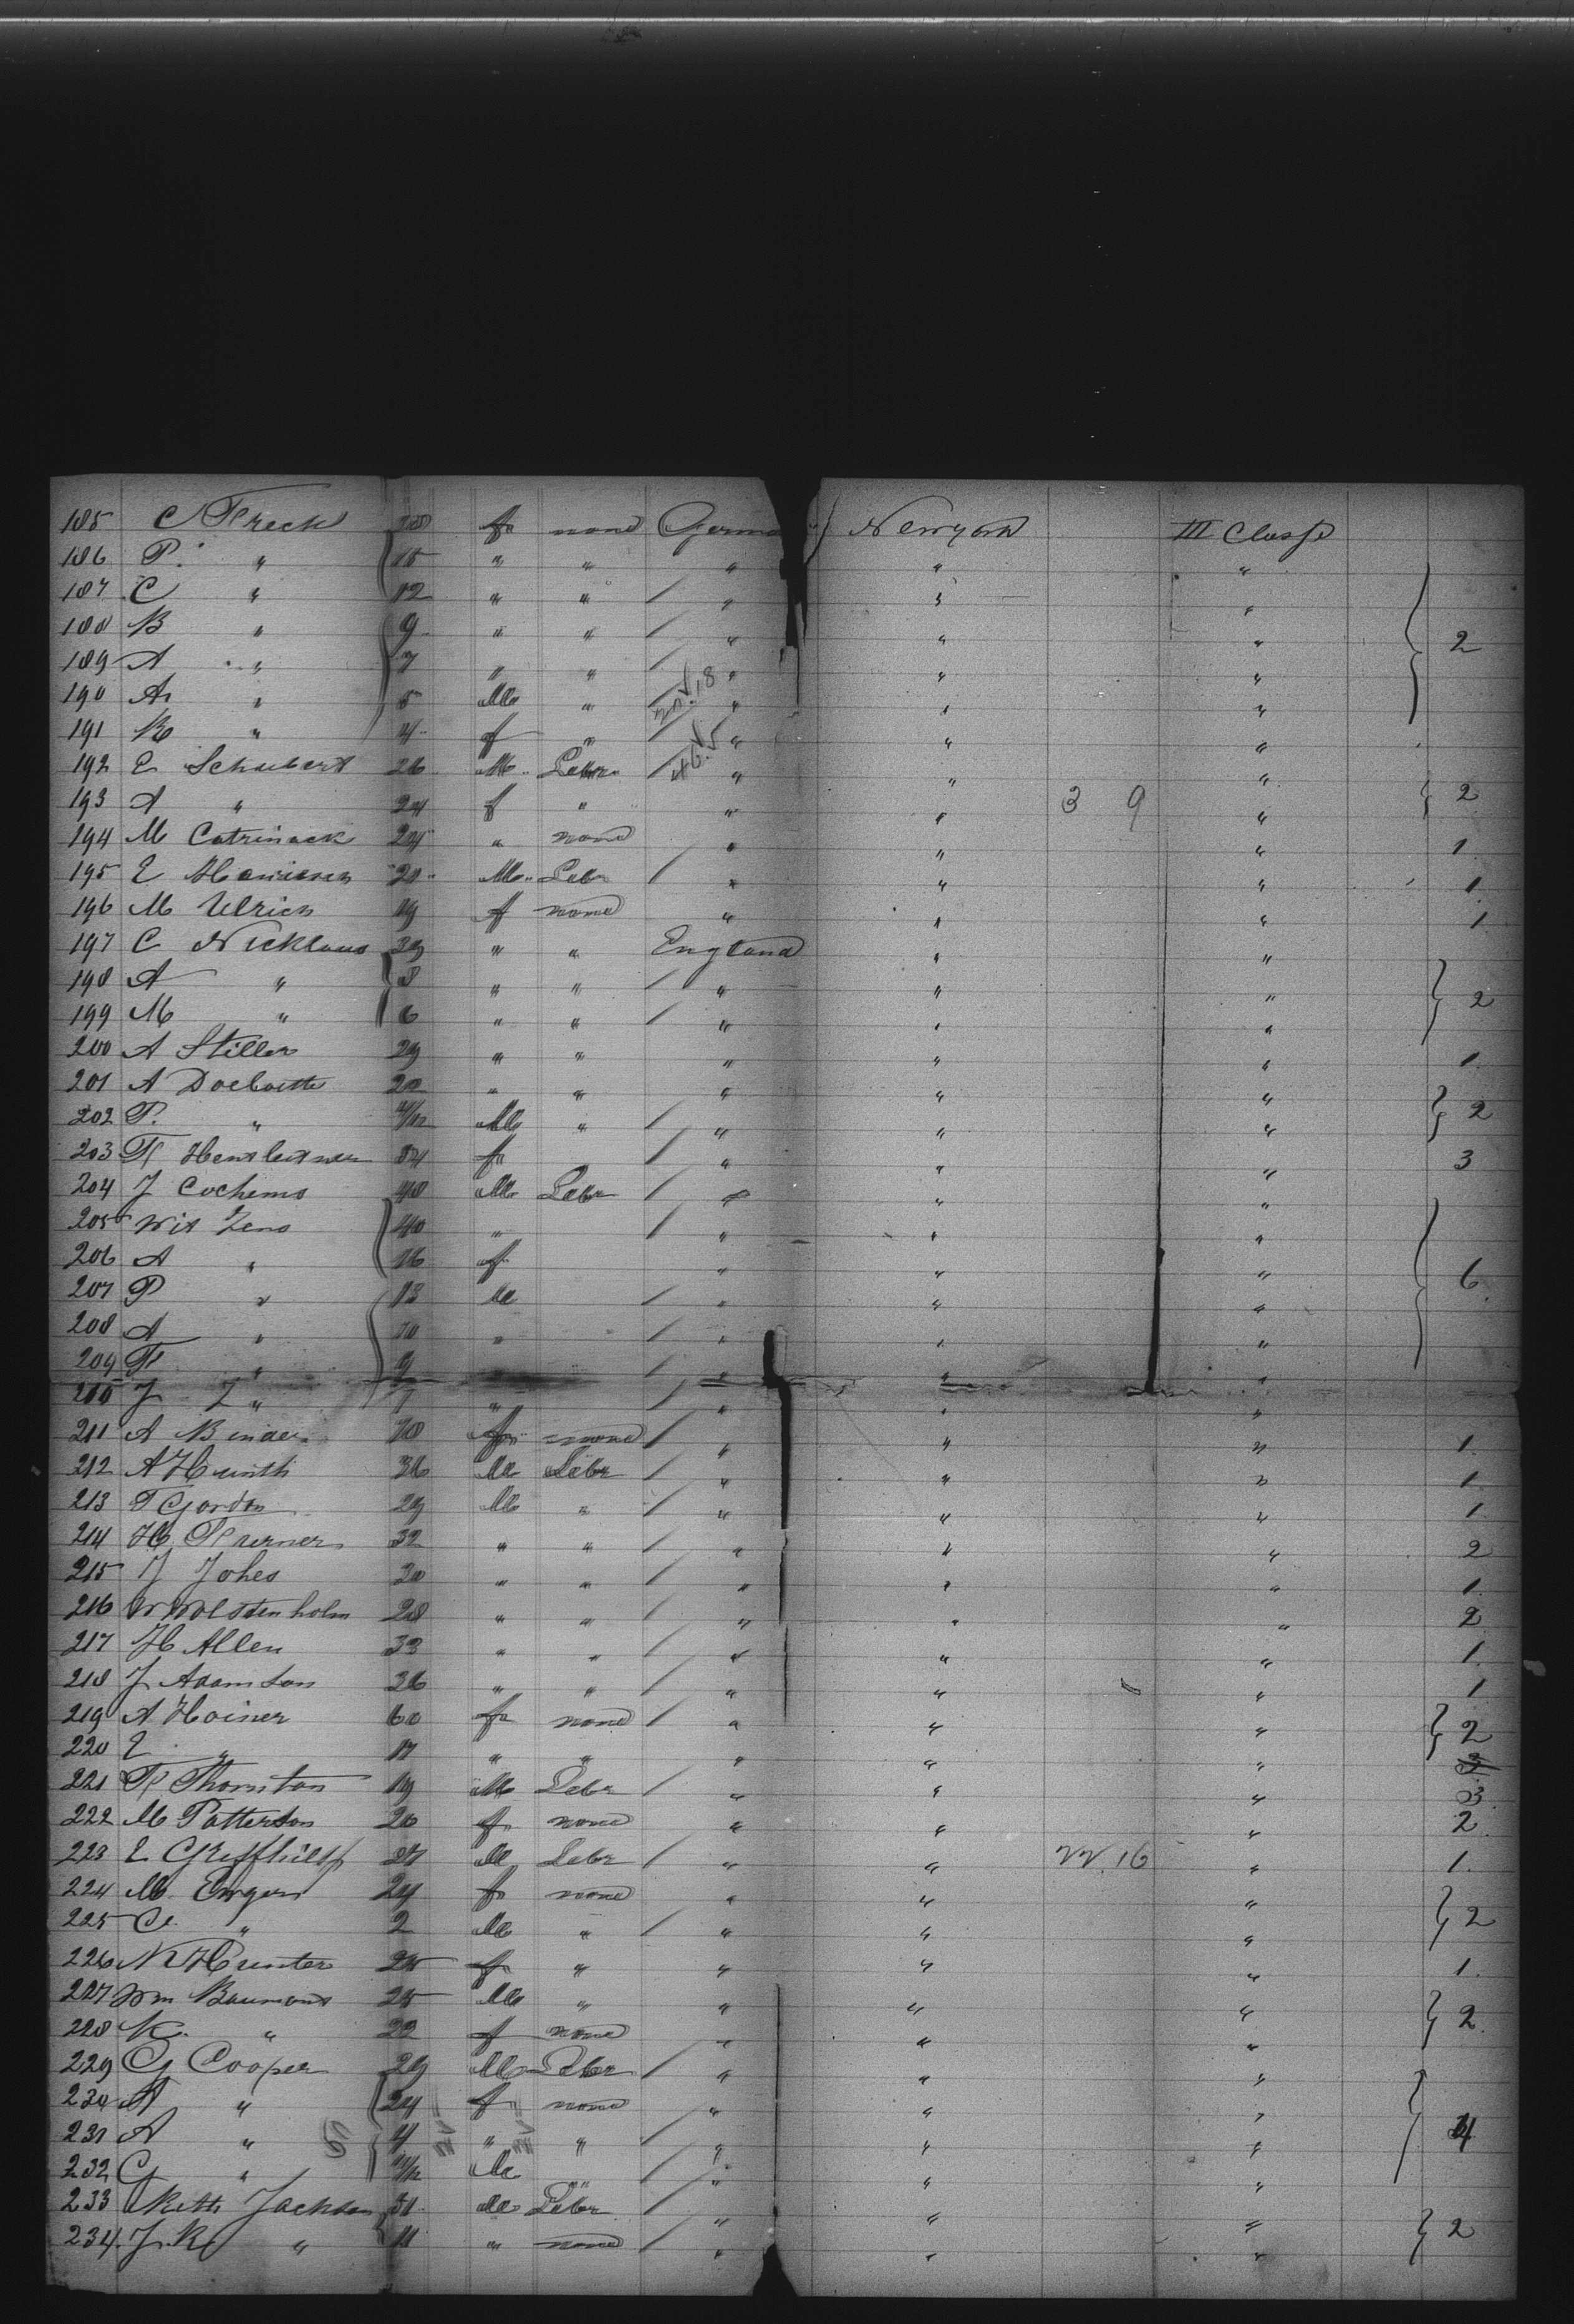 185 C Freck 38 f none Germany New York III Classe
186 P. " 15 " " " " "
187 C " 12 " " / " " "
188 B " 9 " " / " " " 2
189 A " 7 " " / " " "
190 A " 5 M " / " " "
191 K " 4 f " / " " "
192 E Schubert 26 M Labr / " " "
193 A " 24 f " " " 3 9 " 2
194 M Catrinack 24 " none " " " 1
195 E 20 M Labr / " " " 1
196 M Ulrich 19 f none " " " 1
197 C Nicklaus 39 " " England " "
198 A " 8 " " / " " " 2
199 M " 6 " " / " " "
200 A Stiller 29 " " " " " 1
201 A 20 " " " " "
202 P. " 4/12 M " / " " " 2
203 34 f / " " " 3
204 J Cochems 48 M Labr / " " "
205 Zens 40 " / " " "
206 A " 16 f " " "
207 P " 13 M / " " " 6
208 A " 10 " / " " "
209 F " 9 / " " "
210 J Z " 7 " / " " "
211 A Binder f none / " " " 1
212 A Hunth 36 M Labr / " " " 1
213 T Gordon 29 M " / " " " 1
214 H. 32 " " / " " " 2
215 J Johes 30 " " / " " " 1
216 W Wolstenholm 28 " " / " " " 2
217 H Allen 33 " " / " " " 1
218 J Adamson 36 " " / " " " 1
219 A Hoiner 60 f none / " " " 2
220 E " 17 " " " " "
221 Thornton 19 M Labr / " " " 3
222 M Patterson 20 f none " " " 2
223 E 27 M Labr / " " 16 " 1
224 M. 24 f none " " "
225 " 2 M " / " " " 2
226 N Hunter 25 f " " " " 1
227 Wm Baumont 25 M " " " "
228 K. " 22 f none " " " 2
229 G Cooper 29 M Labr / " " "
230 A " 24 f none " " "
231 A " 4 " " / " " " 4
232 G " 11/12 M / " " "
233 Jackson 31 M Labr / " " "
234 J. R " 11 " none / " " " 2